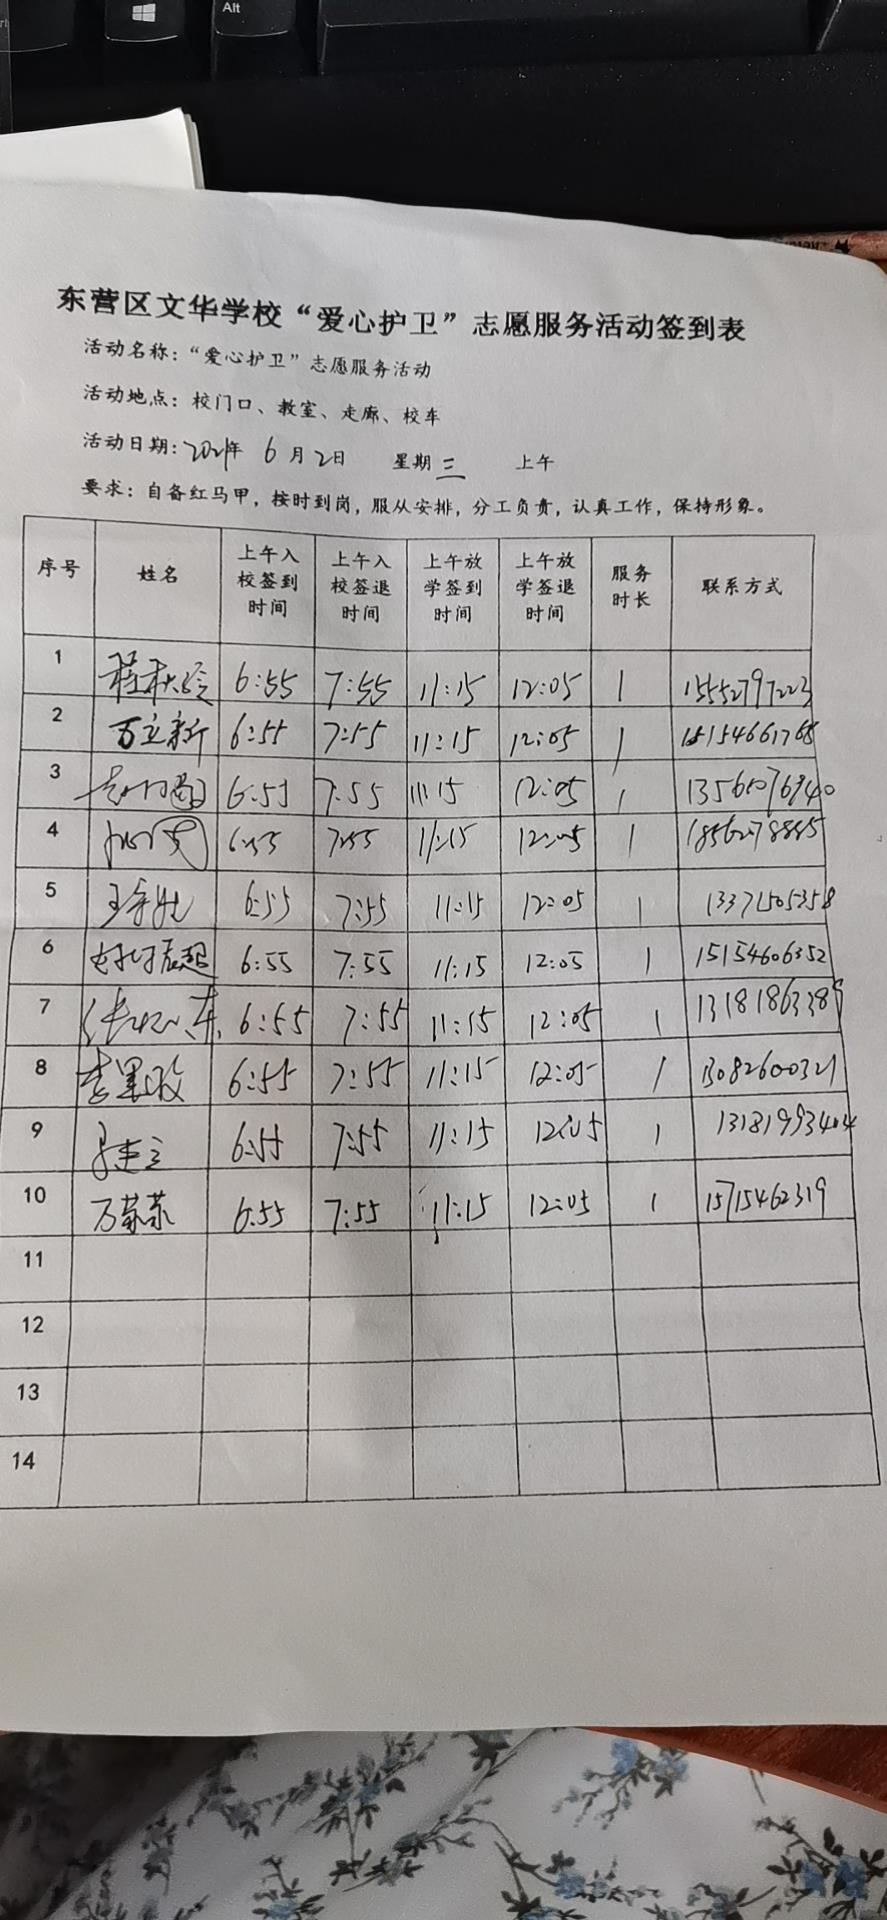 Alt
东营区文华学校“爱心护卫”志愿服务活动签到表
活动名称：“爱心护卫”志愿服务活动
活动地点：校门口、教室、走廊、校车
活动日期：2021年 6月2日 星期三 上午
要求：自备红马甲，按时到岗，服从安排，分工负责，认真工作，保持形象。
序号 姓名 上午入校签到时间 上午入校签退时间 上午放学签到时间 上午放学签退时间 服务时长 联系方式
1 6:55 7:55 11:15 12:05 1 15552797223
2 万立新 6:55 7:55 11:15 12:05 1 15154661768
3 6:55 7:55 11:15 12:05 1
4 6:55 7:55 11:15 12:05 1
5 6:55 7:55 11:15 12:05 1 13371505358
6 6:55 7:55 11:15 12:05 1 15154606352
7 6:55 7:55 11:15 12:05 1 13181863389
8 6:55 7:55 11:15 12:05 1 13082600321
9 6:55 7:55 11:15 12:05 1 13181993404
10 万荣荣 6:55 7:55 11:15 12:05 1 15715462319
11
12
13
14